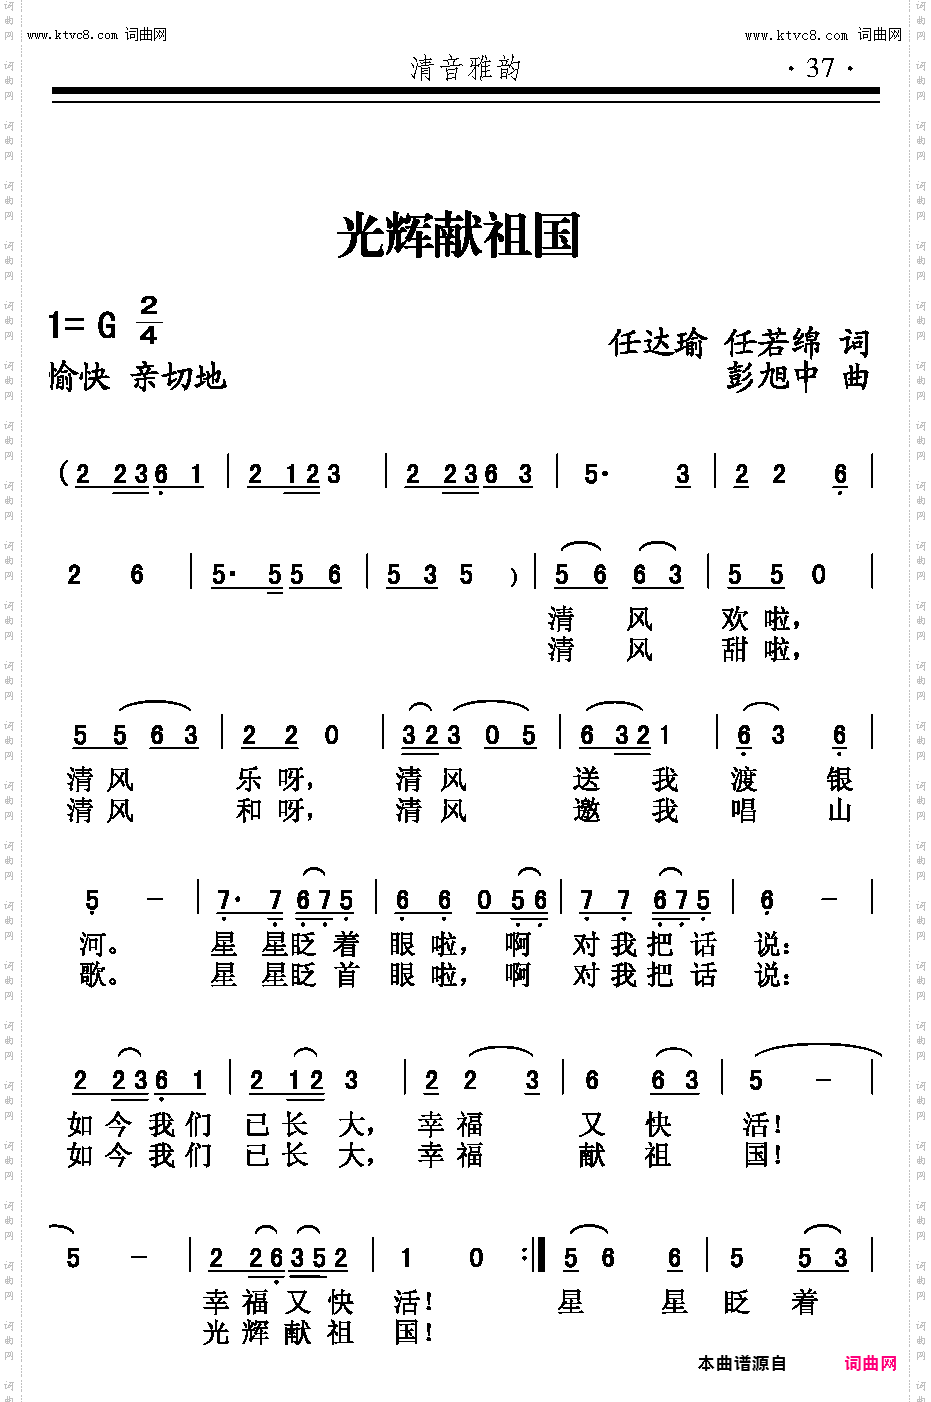 www.ktvc8.com 词曲网 www.ktvc8.com 词曲网
清音雅韵 ·37·
光辉献祖国
1= G 2/4
任达瑜 任若绵 词
愉快 亲切地 彭旭中 曲
( 2 2 3 6 1 | 2 1 2 3 | 2 2 3 6 3 | 5· 3 | 2 2 6 |
2 6 | 5· 5 5 6 | 5 3 5 ) | 5 6 6 3 | 5 5 0 |
清 风 欢 啦,
清 风 甜 啦,
5 5 6 3 | 2 2 0 | 3 2 3 0 5 | 6 3 2 1 | 6 3 6 |
清 风 乐 呀, 清 风 送 我 渡 银
清 风 和 呀, 清 风 邀 我 唱 山
5 — | 7· 7 6 7 5 | 6 6 0 5 6 | 7 7 6 7 5 | 6 — |
河。 星 星 眨 着 眼 啦, 啊 对 我 把 话 说:
歌。 星 星 眨 首 眼 啦, 啊 对 我 把 话 说:
2 2 3 6 1 | 2 1 2 3 | 2 2 3 | 6 6 3 | 5 — |
如 今 我 们 已 长 大, 幸 福 又 快 活!
如 今 我 们 已 长 大, 幸 福 献 祖 国!
5 — | 2 2 6 3 5 2 | 1 0 :| 5 6 6 | 5 5 3 |
幸 福 又 快 活! 星 星 眨 着
光 辉 献 祖 国!
本曲谱源自 词曲网